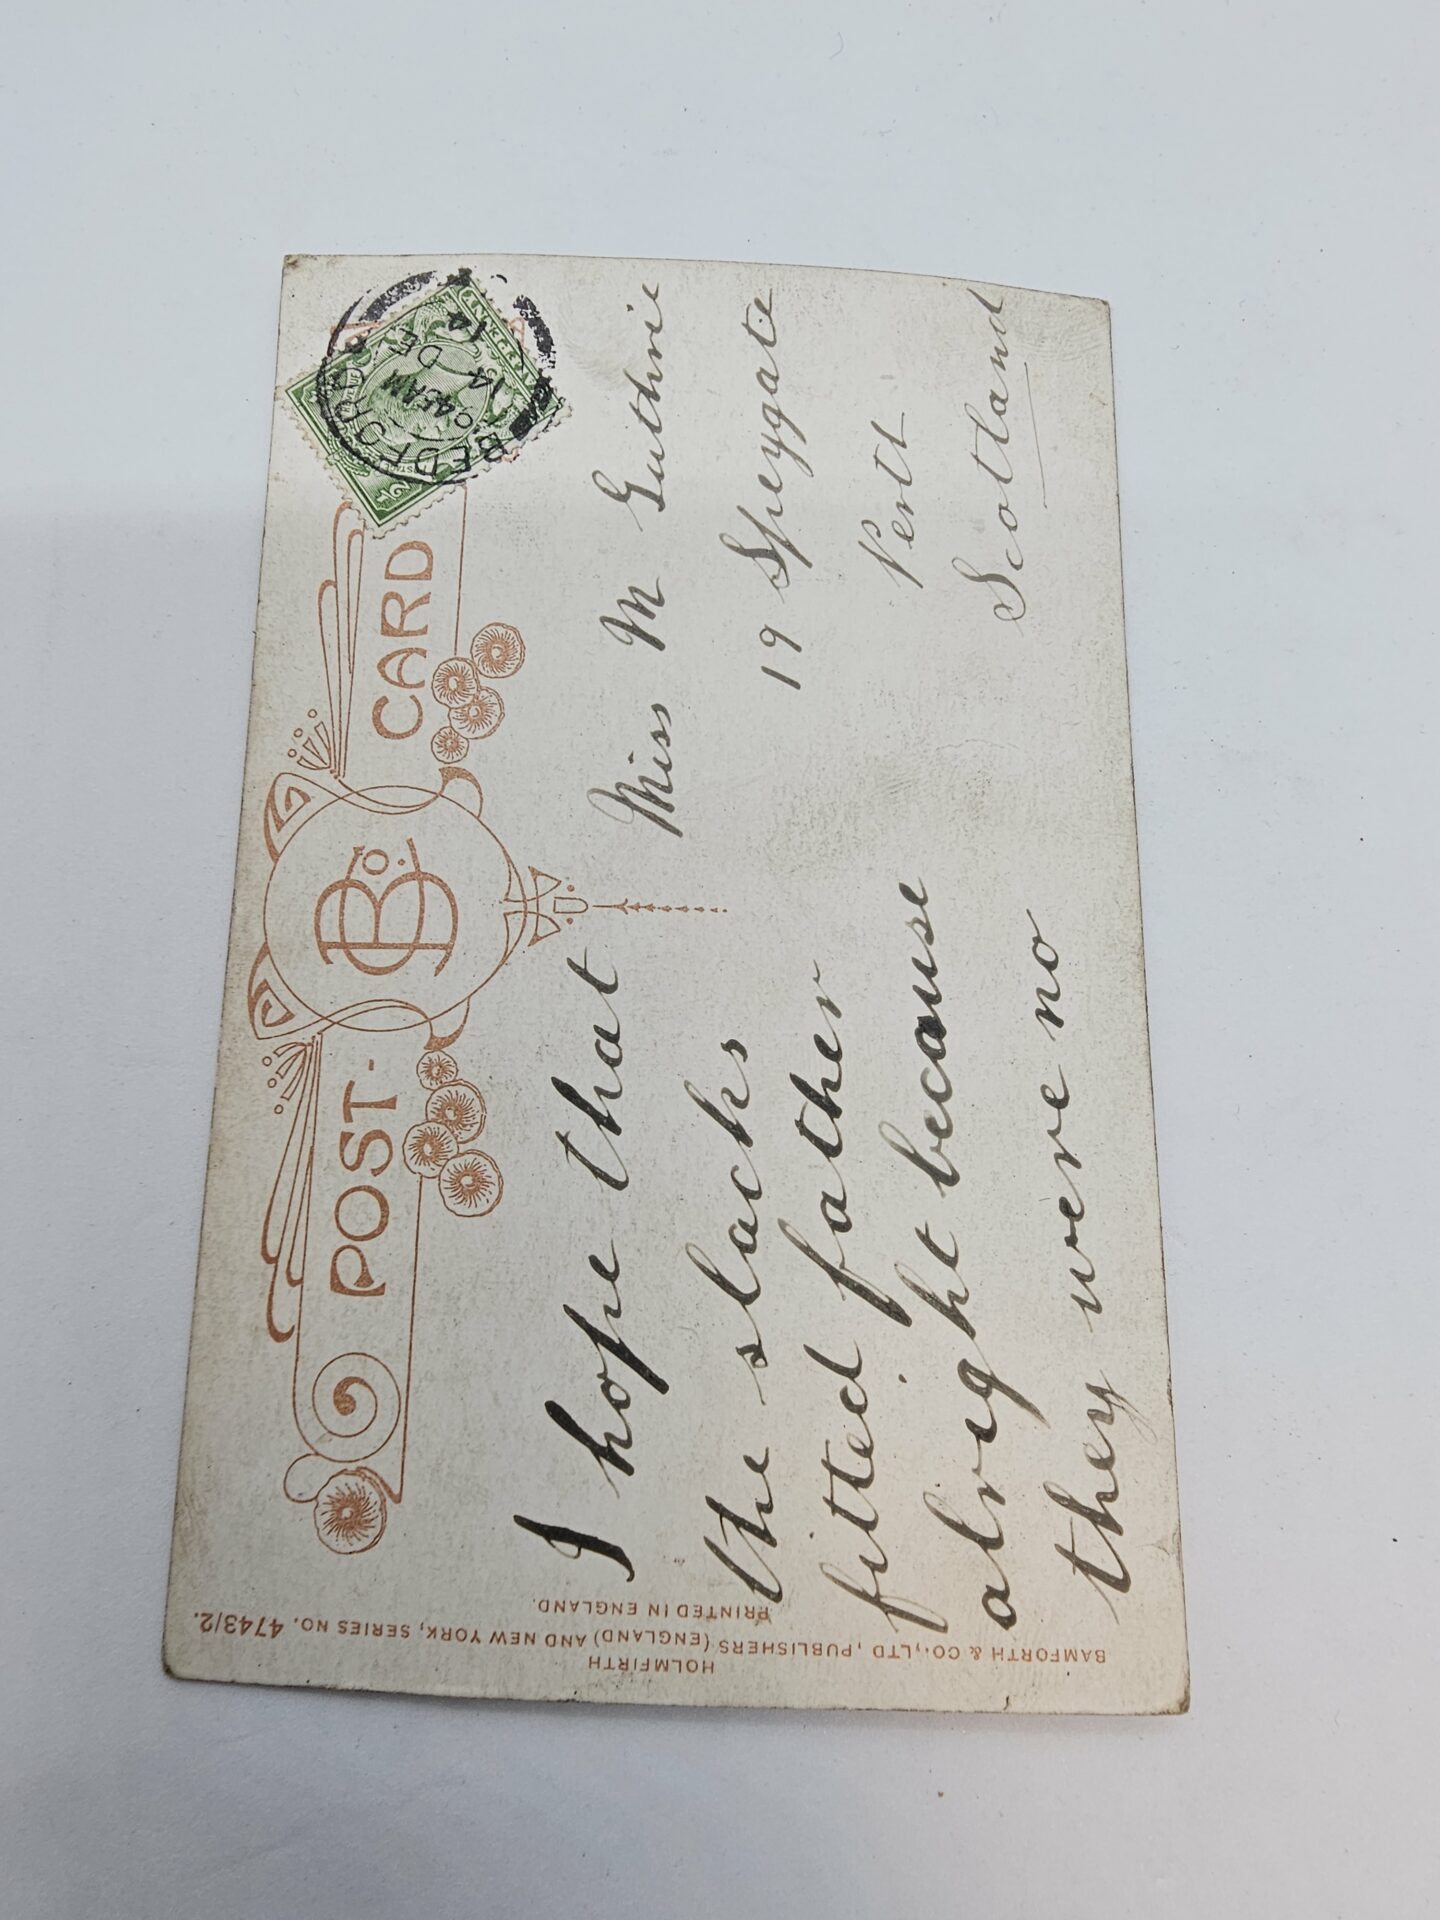 POST- CARD
B & Co.
BEDFORD
9 45 AM
14 DE
14
I hope that
the slacks
fitted father
alright because
they were no
Miss M Guthrie
19 Speygate
Perth
Scotland
HOLMFIRTH
BAMFORTH & CO., LTD, PUBLISHERS (ENGLAND) AND NEW YORK, SERIES NO. 4743/2.
PRINTED IN ENGLAND.